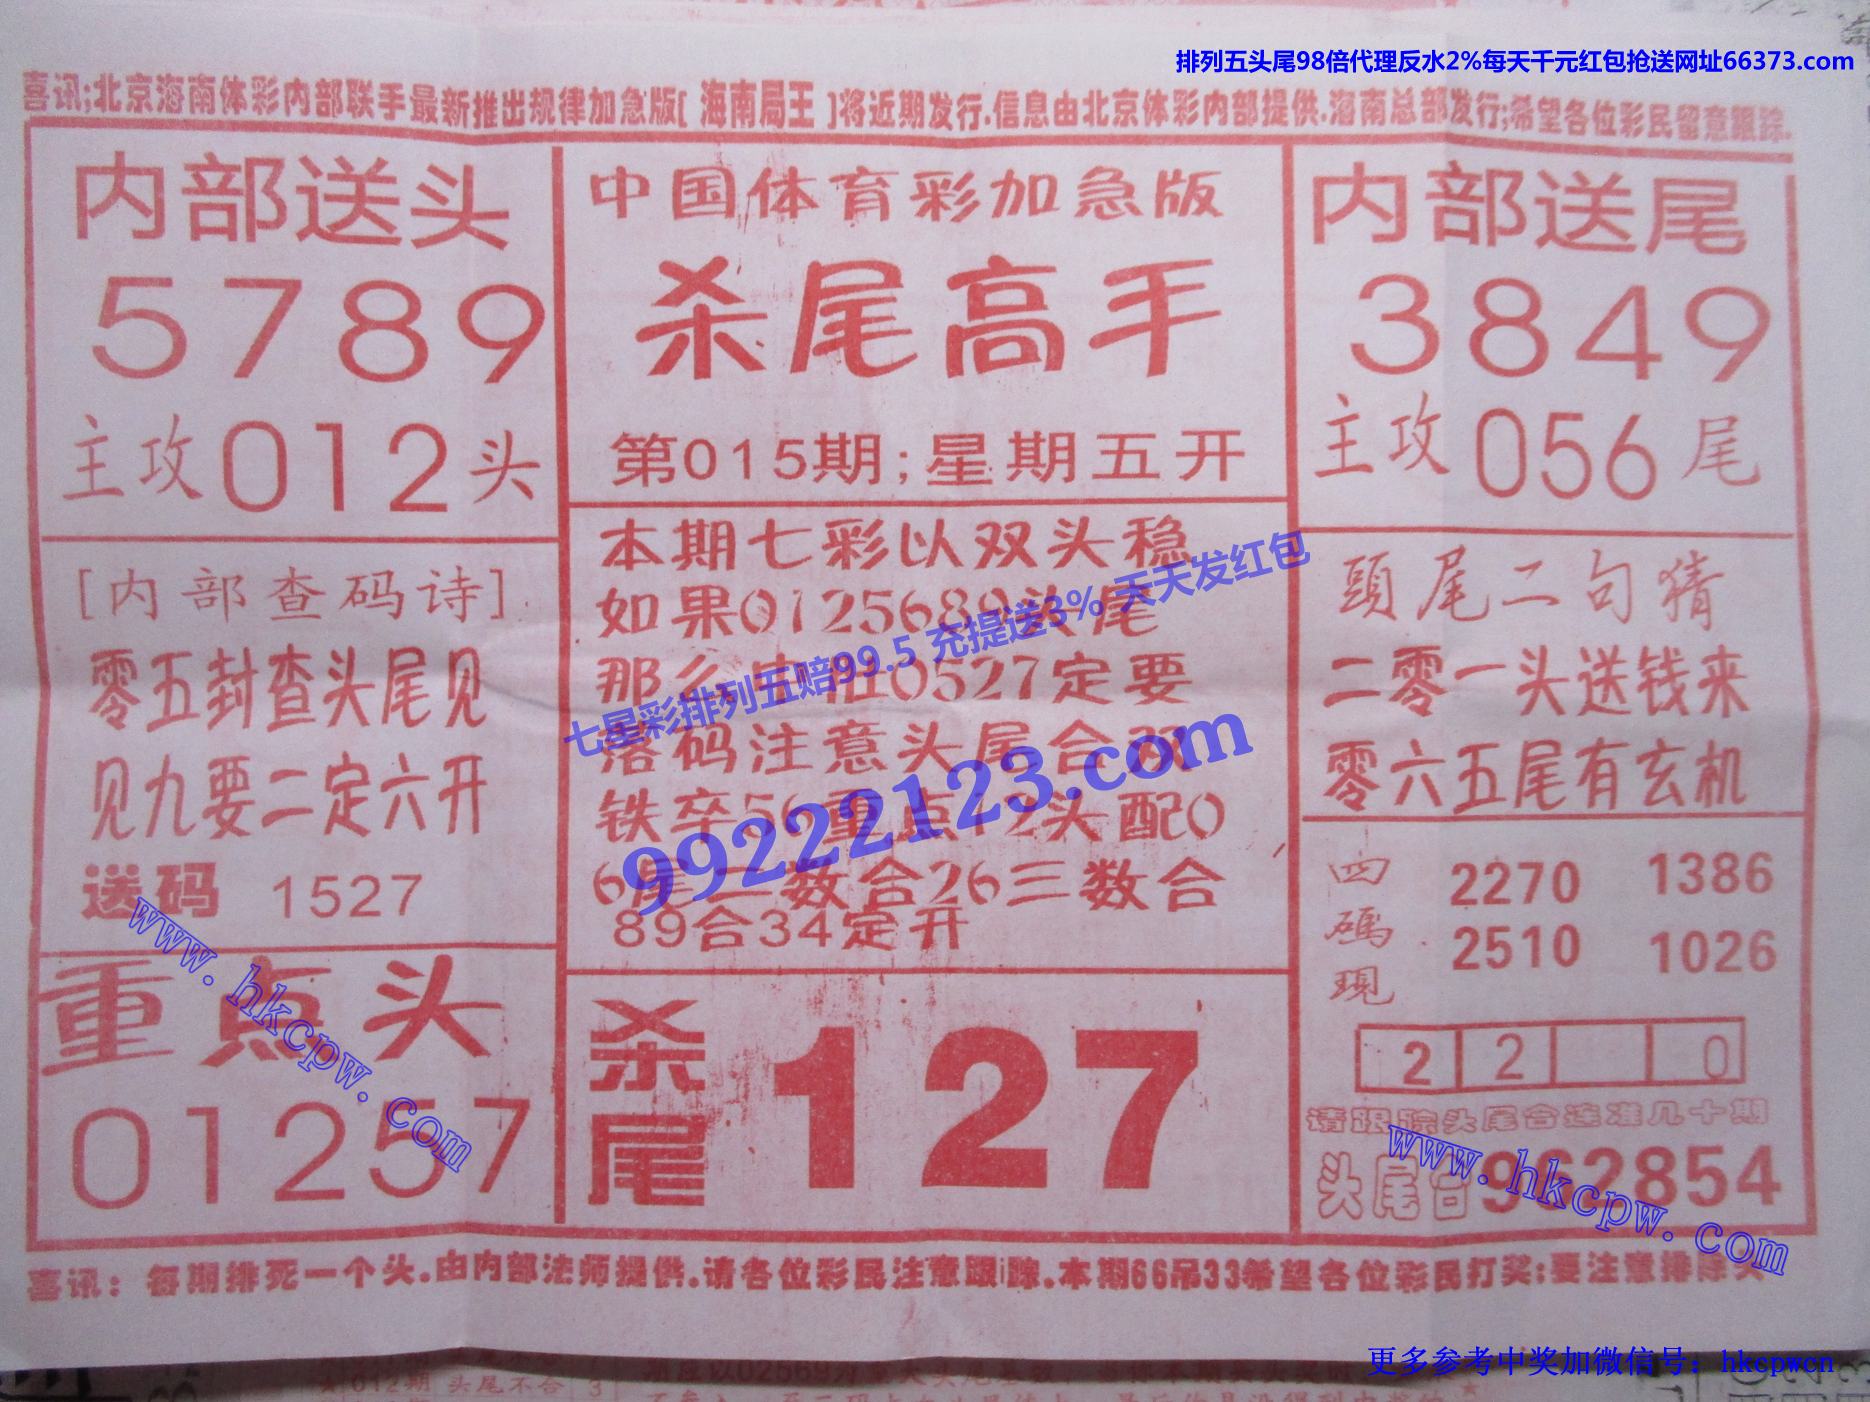 排列五头尾98倍代理反水2%每天千元红包抢送网址66373.com
喜讯;北京海南体彩内部联手最新推出规律加急版[ 海南局王 ]将近期发行.信息由北京体彩内部提供.海南总部发行;希望各位彩民留意跟踪.
内部送头
5789
主攻012头
[内部查码诗]
零五封查头尾见
见九要二定六开
送码 1527
重点头
01257
中国体育彩加急版
杀尾高手
第015期;星期五开
本期七彩以双头稳
如果0125689头尾
那么 0527定要
落码注意头尾合双
铁卒56重点12头配0
6尾二数合26三数合
89合34定开
杀尾
127
七星彩排列五赔99.5 充提送3% 天天发红包
99222123.com
内部送尾
3849
主攻056尾
頭尾二句猜
二零一头送钱来
零六五尾有玄机
四碼現
2270 1386
2510 1026
2 2 0
请跟踪头尾合连准几十期
头尾合962854
www.hkcpw.com
www.hkcpw.com
喜讯：每期排死一个头.由内部法师提供.请各位彩民注意跟踪.本期66吊33希望各位彩民打买;要注意排除头
更多参考中奖加微信号：hkcpwcn
012期 头尾不合 3